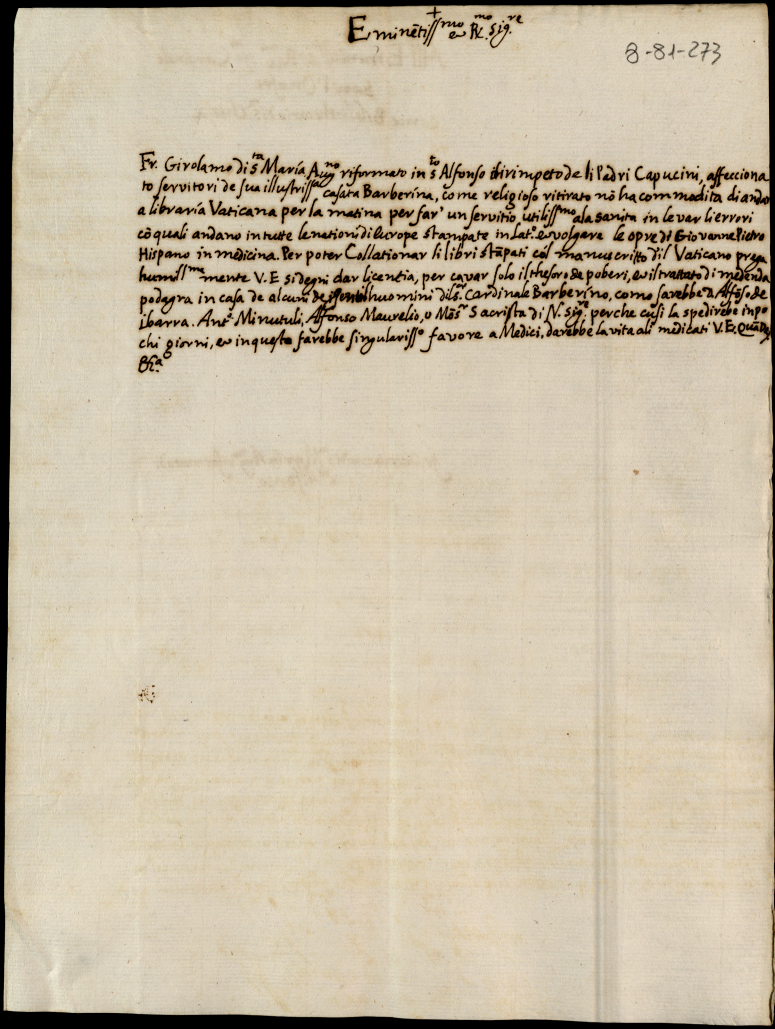 +
Eminẽtissmo er R.mo Sig.re
8-81-273
Fr. Girolamo di S.ta María Aug.no riformato in S.to Alfonso dirimpeto de li Padri Capucini, affecciona
to servitori de sua illustrissa casata Barberina, come religioso ritirato nõ ha commodita di andar
a libraría Vaticana per la matina per far' un servitio utilissmo a la sanita in levar li errori
cõ quali andano in tutte le nationi di Europe stampate in Lat.o er volgare le opre di Giovanne Pietro
Hispano in medicina. Per poter Collationar li libri stãpati col manuscritto dil Vaticano prega
humill.ma mente V. E si degni dar licentia, per cavar solo il thesoro de poberi, er il trattato di medenda
podagra in casa de alcuni de gentilhuomini dil S.r Cardinale Barberino, como sarebbe D. Alfõso de
ibarra. Ant.o Minutuli, Alfonso Maurelio, o Mõs.r Sacrista di N. Sig.re perche cusi la spedirebe in po
chi giorni, er in questo farebbe singulariss.o favore a Medici, darebbe la vita ali medicati V. E. Quã
&c.a